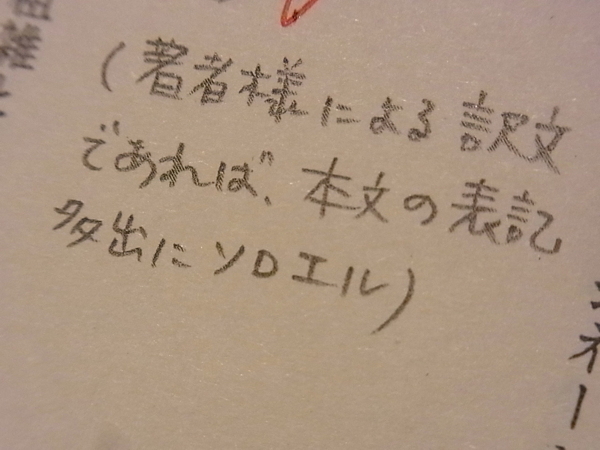 (著者様による訳文
であれば、本文の表記
多出にソロエル)